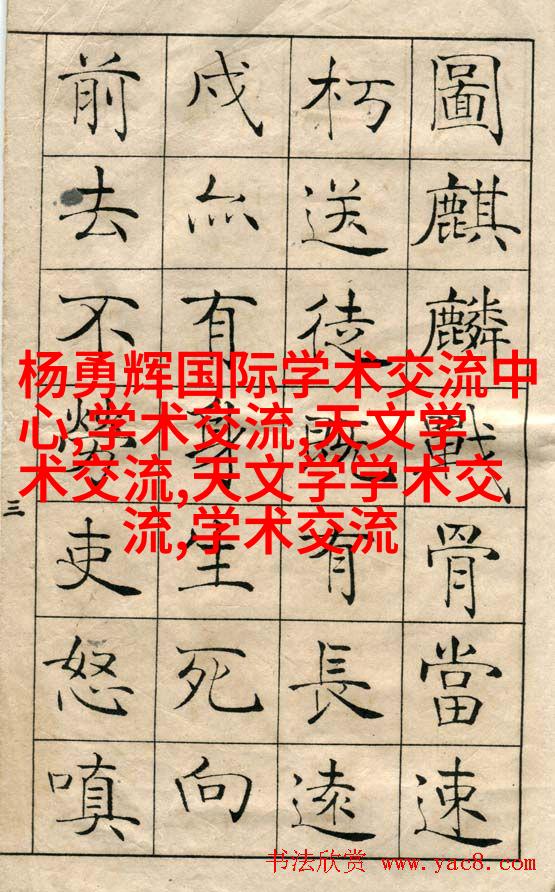 圖麒麟戰骨當速
朽送徒既有長遠
戍亦有身生死向
前去不勞吏怒嗔
三
杨勇辉国际学术交流中
心,学术交流,天文学
术交流,天文学学术交
流,学术交流
书法欣赏 www.yac8.com